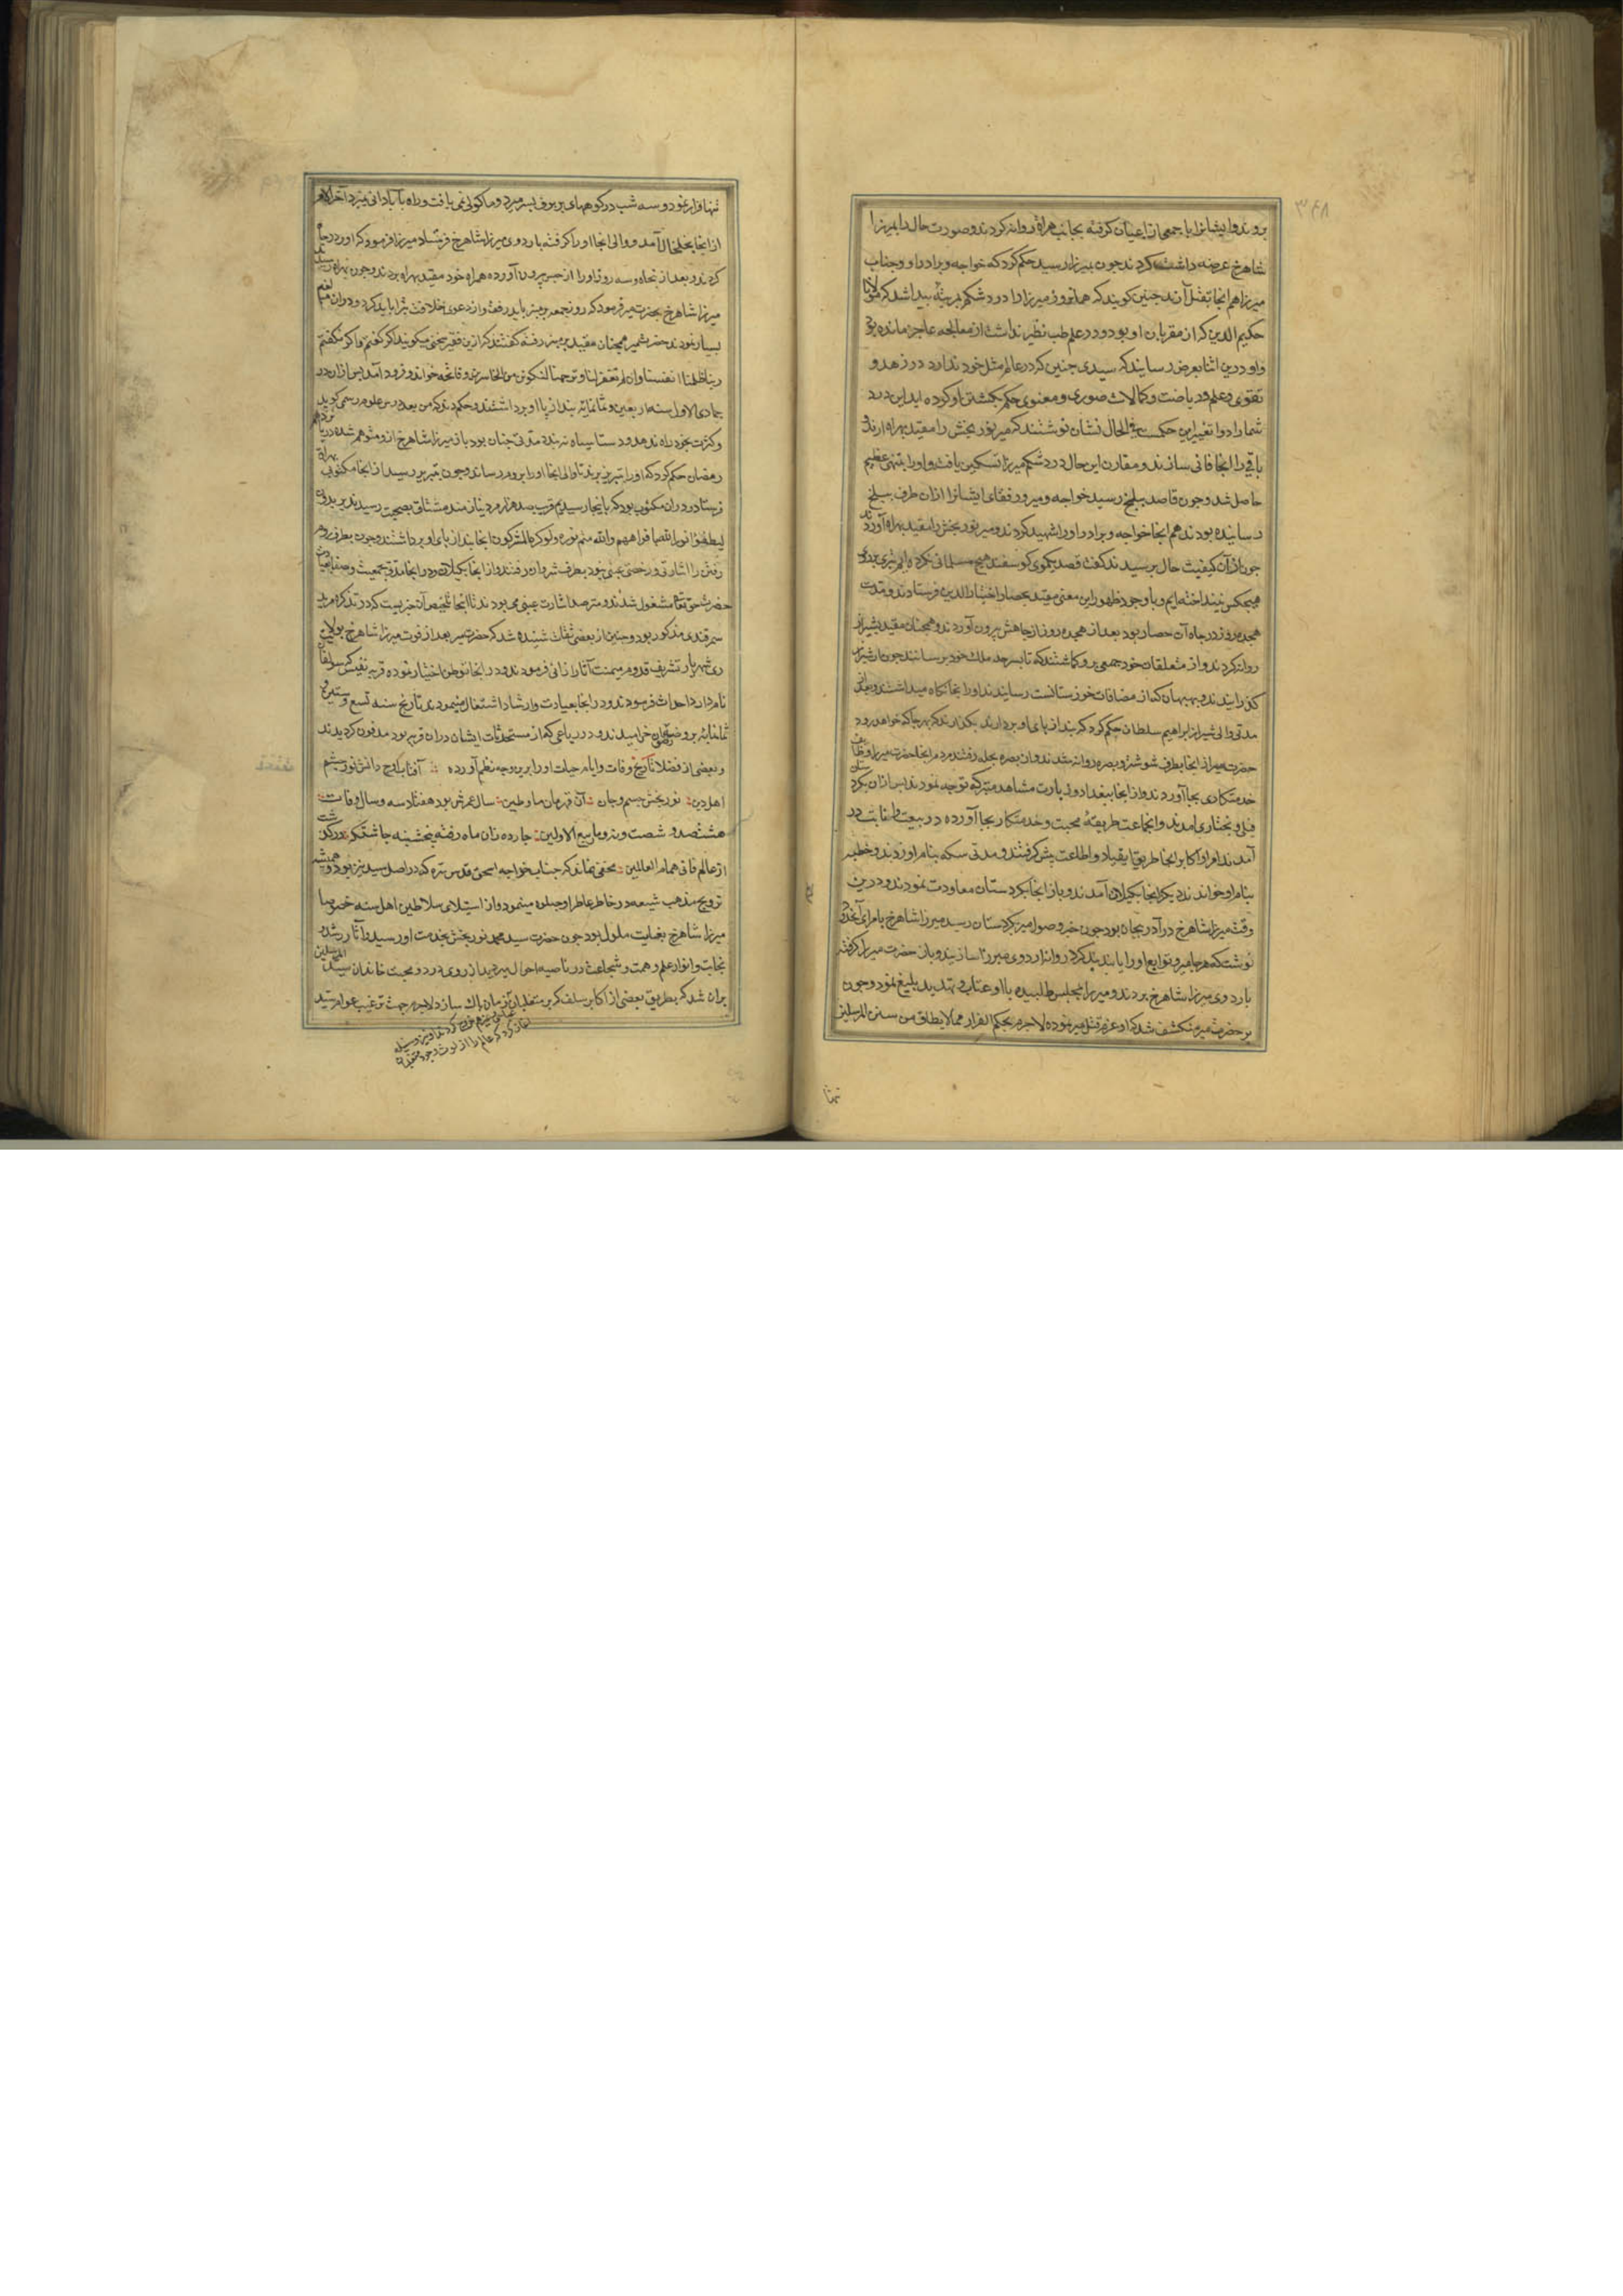 ۳۶۸
بروند و ایشانرا با جمعی از اعیان کرفته بجانب هراة روانه کردند و صورت حال را بمیرزا
شاهرخ عرضه داشت کردند جون بمیرزا رسید حکم کرد که خواجه و برادر او و جناب
میرزا هم انجا بقتل آرند جنین کویند که همانروز میرزا را درد شکم بمرتبه بیدا شد که مولانا
حکیم الدین که از مقربان او بود و در علم طب نظیر نداشت از معالجه عاجز مانده بود
و او درین اثنا بعرض رسانید که سیدی جنین که در عالم مثل خود ندارد در زهد و
تقوی و علم و ریاضت و کمالات صوری و معنوی حکم بکشتن او کرده اید این درد
شما را دوا تغییر این حکمست فی الحال نشان نوشتند که میر نور بخش را مقید بهراة ارند و
باقی را انجا فانی سازند و مقارن این حال درد شکم میرزا تسکین یافت و او را تنبهی عظیم
حاصل شد و جون قاصد ببلخ رسید خواجه و میر و رفقای ایشانرا ازان طرف ببلخ
رسانیده بودند هم انجا خواجه و برادر او را شهید کردند و میر نور بخش را مقید بهراة آوردند
جون از آن کیفیت حال برسیدند کفت قصد یکموی کوسفند هیچ مسلمانی نکرده ایم تیری بروی
هیجکس نینداخته ایم و با وجود ظهور این معنی مقید بحصار اختیار الدین فرستادند و مدت
هجده روز در جاه آن حصار بود بعد از هجده روز از جاهش بیرون آوردند و همجنان مقید بشیراز
روانه کردند و از متعلقان خود جمعی برو کماشتند که تا بسرحد ملک خود برسانند جون از شیراز
کذرانیدند و ببهبهان که از مضافات خوزستانست رسانیدند او را بجا نکاه میداشتند و بعد از
مدتی والی شیراز ابراهیم سلطان حکم کرد که بند از بای او بردارند بکذارند که بهر جا که خواهد رود
حضرت میر از انجا بطرف شوشتر و بصره روانه شدند و ان بصره بحله رفتند مردم انجا حضرت میر را وظایف
خدمتکاری بجا آوردند و از انجا ببغداد و زیارت مشاهد متبرکه توجه نمودند بس ازان بکردستان
فیلی و بختیاری امدند و انجماعت طریقه محبت و خدمتکاری بجا آورده در بیعت و انابت در
آمدند امرا و اکابر انجا طریق انقیاد و اطاعت بیش کرفتند و مدتی سکه بنام او زدند و خطبه
بنام او خواندند دیکر از انجا بکیلان آمدند و باز از انجا بکردستان معاودت نمودند و درین
وقت میرزا شاهرخ در آذربیجان بود جون خبر وصول میر بکردستان رسید میرزا شاهرخ بامرای آنحدود
نوشت که هر جا میر و توابع او را یابند بند کرده روانه اردوی میرزا سازند و بازان حضرت میر را کرفته
باردوی میرزا شاهرخ بردند و میرزا بمجلس طلبیده با او عتاب و تهدید بلیغ نمود و جون
بر حضرت میر منکشف شد که او عزم قتل میر نموده لاجرم بحکم الفرار مما لا یطاق من سنن المرسلین
تنها
تنها فرار نمود و سه شب در کوههای بر برف بسر میبرد و ماکولی نمی یافت و راه بآبادانی نمیبرد آخر الامر
از انجا بخلخال آمد و والی انجا او را کرفته باردوی میرزا شاهرخ فرستاد میرزا فرمود که او را در جاه
کردند و بعد از بنجاه و سه روز او را از حبس بیرون آورده همراه خود مقید بهراه بردند و جون بهراه رسید
میرزا شاهرخ بحضرت میر فرمود که روز جمعه بر منبر باید رفت و از دعوی خلافت تبرا باید کرد و دران مبالغه
بسیار نمودند حضرت میر همجنان مقید بر منبر رفته کفتند که ازین فقیر سخنی میکویند اکر کفتم و اکر نکفتم
ربنا ظلمنا انفسنا وان لم تغفر لنا وترحمنا لنکونن من الخاسرین و فاتحه خواند و فرود آمد بس ازان در
جمادی الاول سنه اربعین و ثمانمائه بند از با او برداشتند و حکم شد که من بعد درس علوم رسمی کوید
و کثرت بخود راه ندهد و دستار سیاه نه بندد مدتی جنان بود باز میرزا شاهرخ ازو متوهم شده در
رمضان حکم کرد که او را بتبریز برند تا والی انجا او را بروم رساند و جون بتبریز رسید از انجا مکتوبی بهراة
فرستاد دران مکتوب بود که باینجا رسیدیم قریب صد هزار مرد نیازمند مشتاق بصحبت رسیدند یریدون
لیطفؤا نور الله بافواههم والله متم نوره ولو کره المشرکون انجا بند از بای او برداشتند و جون بطرف روم
رفتن را اشارتی و رخصتی غیبی نبود بطرف شروان رفتند و از انجا بکیلان و در انجا مدتی بجمعیت و صفا بعبادت
حضرت حق تعالی مشغول شدند و مترصد اشارت غیبی می بودند تا اینجا تلخیص آن خبریست که در تذکره میر
سمرقندی مذکور بود و جنین از بعضی ثقات شنیده شد که حضرت میر بعد از فوت میرزا شاهرخ بولایت
ری شهریار تشریف قدوم میمنت آثار ارزانی فرمودند و در انجا توطن اختیار نموده قریه نفیس که سولقان
نام دارد احداث فرمودند و در انجا بعبادت و ارشاد اشتغال مینمودند تا بتاریخ سنه تسع و ستین و
ثمانمایه بروضه رضوان خرامیدند و در باغی که از مستحدثات ایشان دران قریه بود مدفون کردیدند
و بعضی از فضلا تاریخ وفات و ایام حیات او را برین وجه بنظم آورده آفتاب اوج دانش نور چشم
اهل دین نور بخش جسم و جان آن قهرمان ما و طین سال عمرش بود هفتاد سه و سال وفات
هشتصد و شصت و نه و ماه ربیع الاولین جارده زان ماه رفته بنجشنبه جاشتکه درکذشت
از عالم فانی همام العالمین مخفی نماند که جناب خواجه اسحق قدس سره که در اصل سید نیز بود و همیشه
ترویج مذهب شیعه در خاطر عاطر او جلوه مینمود و از استیلای سلاطین اهل سنه خصوصا
میرزا شاهرخ بغایت ملول بود جون حضرت سید محمد نور بخش بخدمت او رسید و آثار رشد و
نجابت و انوار علم و همت و شجاعت در ناصیه احوال میر دید از روی درد و محبت خاندان سید المرسلین
بران شد که بطریق بعضی از اکابر سلف که بر متغلبان زمان باک سازد لاجرم جهت ترغیب عوام